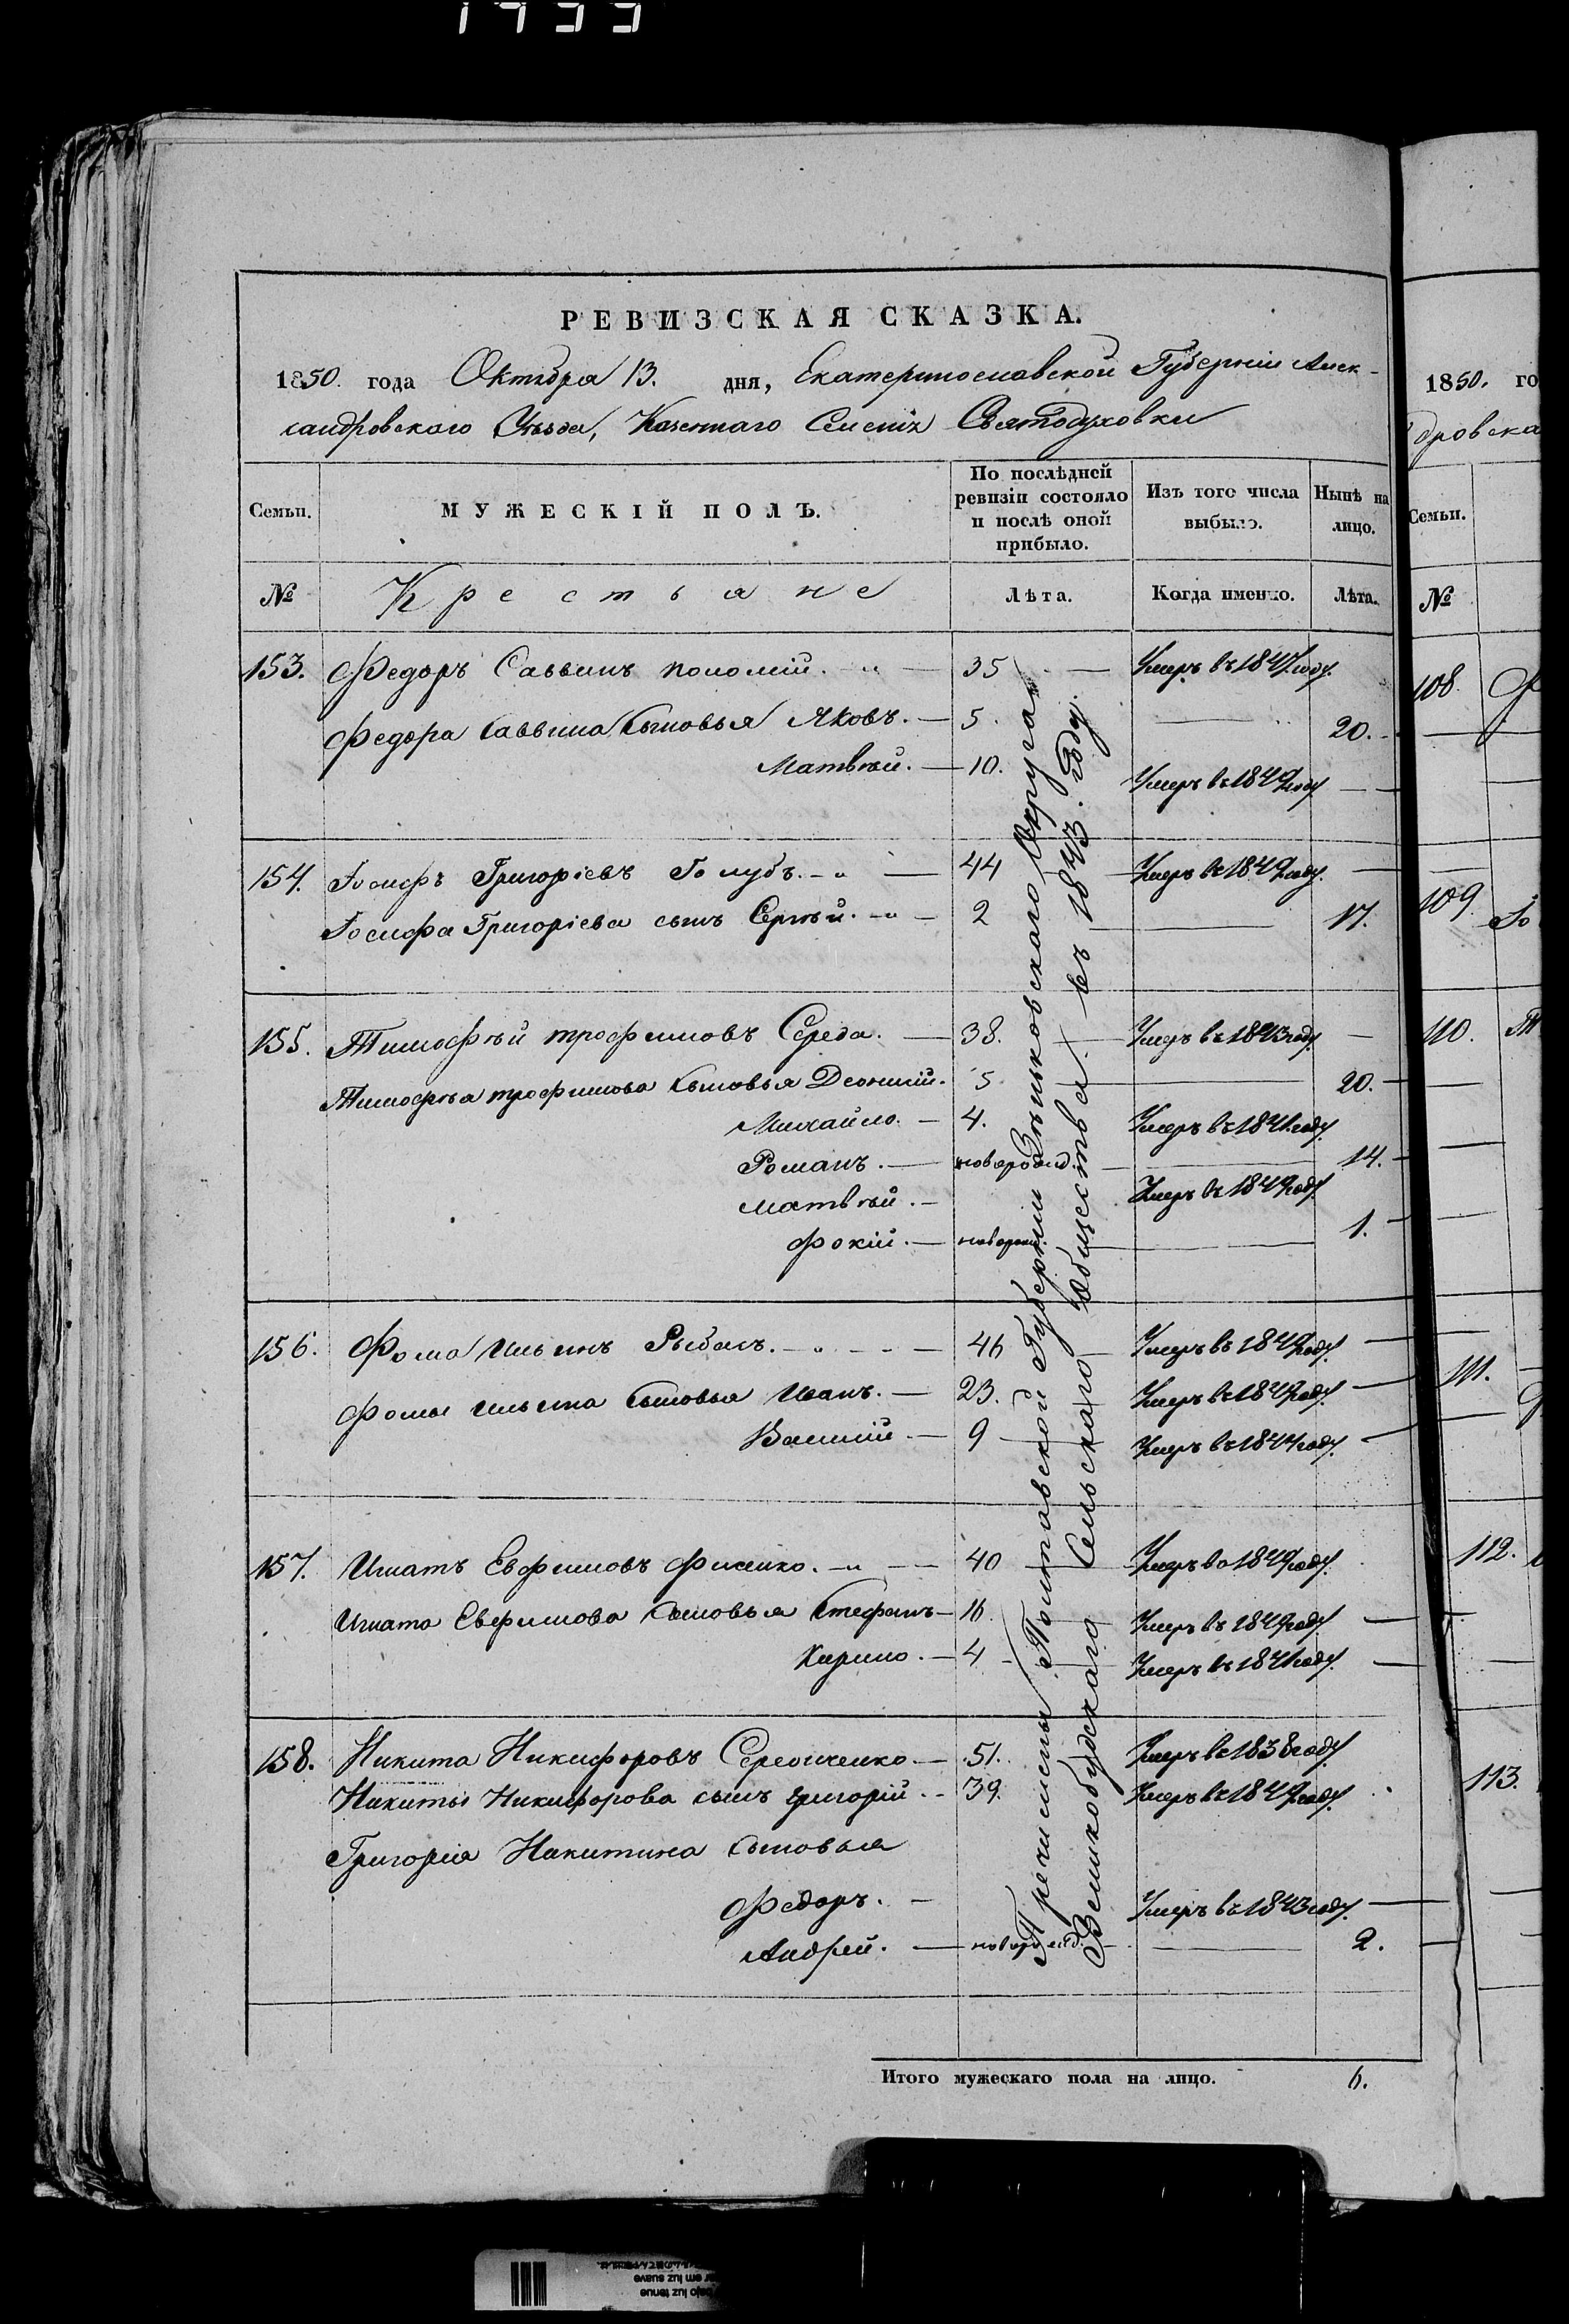 1733
РЕВИЗСКАЯ СКАЗКА.
1850. года Октября 13. дня, Екатеринославской Губерніи Алек-
сандровского Уѣзда, Казенного Селенія Святодуховки
Семьи. МУЖЕСКІЙ ПОЛЪ. По послѣдней ревизіи состояло и послѣ оной прибыло. Изъ того числа выбыло. Нынѣ на лицо.
№ Крестьяне Лѣта. Когда именно. Лѣта.
153. Федоръ Саввинъ 35 Умеръ въ 1847 году.
Федора Саввина сыновья Яковъ. 5. 20.
Матвѣй. 10. Умеръ въ 1849 году
154. Іосифъ Григоріевъ Голубъ. 44 Умеръ въ 1849 году.
Іосифа Григоріева сынъ Сергѣй. 2 17.
155. Тимофѣй трофимовъ Середа. 38. Умеръ въ 1843 году.
Тимофѣя трофимова сыновья Деонисій. 5. 20.
Михайло. 4. Умеръ въ 1841 году.
Романъ. новорожд. 14.
матвѣй. Умеръ въ 1849 году
Фокій. новорожд. 1.
156. Фома Ильинъ Рыбакъ. 46 Умеръ въ 1849 году.
Фомы ильина сыновья Иванъ. 23. Умеръ въ 1849 году.
Василій. 9 Умеръ въ 1844 году.
157. Игнатъ Евфимовъ Фисенко. 40 Умеръ въ 1849 году.
Игната Евфимова сыновья Стефанъ 16. Умеръ въ 1849 году.
Кирило. 4 Умеръ въ 1841 году.
158. Никита Никифоровъ 51. Умеръ въ 1838 году
Никиты Никифорова сынъ Григорій. 39. Умеръ въ 1849 году.
Григорія Никитина сыновья
Федоръ. Умеръ въ 1843 году.
Андрей. новорожд. 2.
Причислены Полтавской Губерніи Зѣньковского Округа
Великобудскаго Сельскаго Общества въ 1843. году.
Итого мужескаго пола на лицо. 6.
1850. го
дровска
Семьи.
№
108. Ф
109. Іо
110. Т
111.
112.
113.